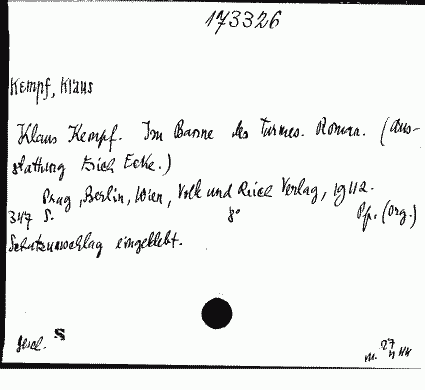 173326
Kempf, Klaus
Klaus Kempf. Im Banne des Turmes. Roman. (Aus-
stattung Erich Ecke.)
Prag, Berlin, Wien, Volk und Reich Verlag, 1942.
347 S. 8° Pp. (Org.)
Schutzumschlag eingeklebt.
S
27